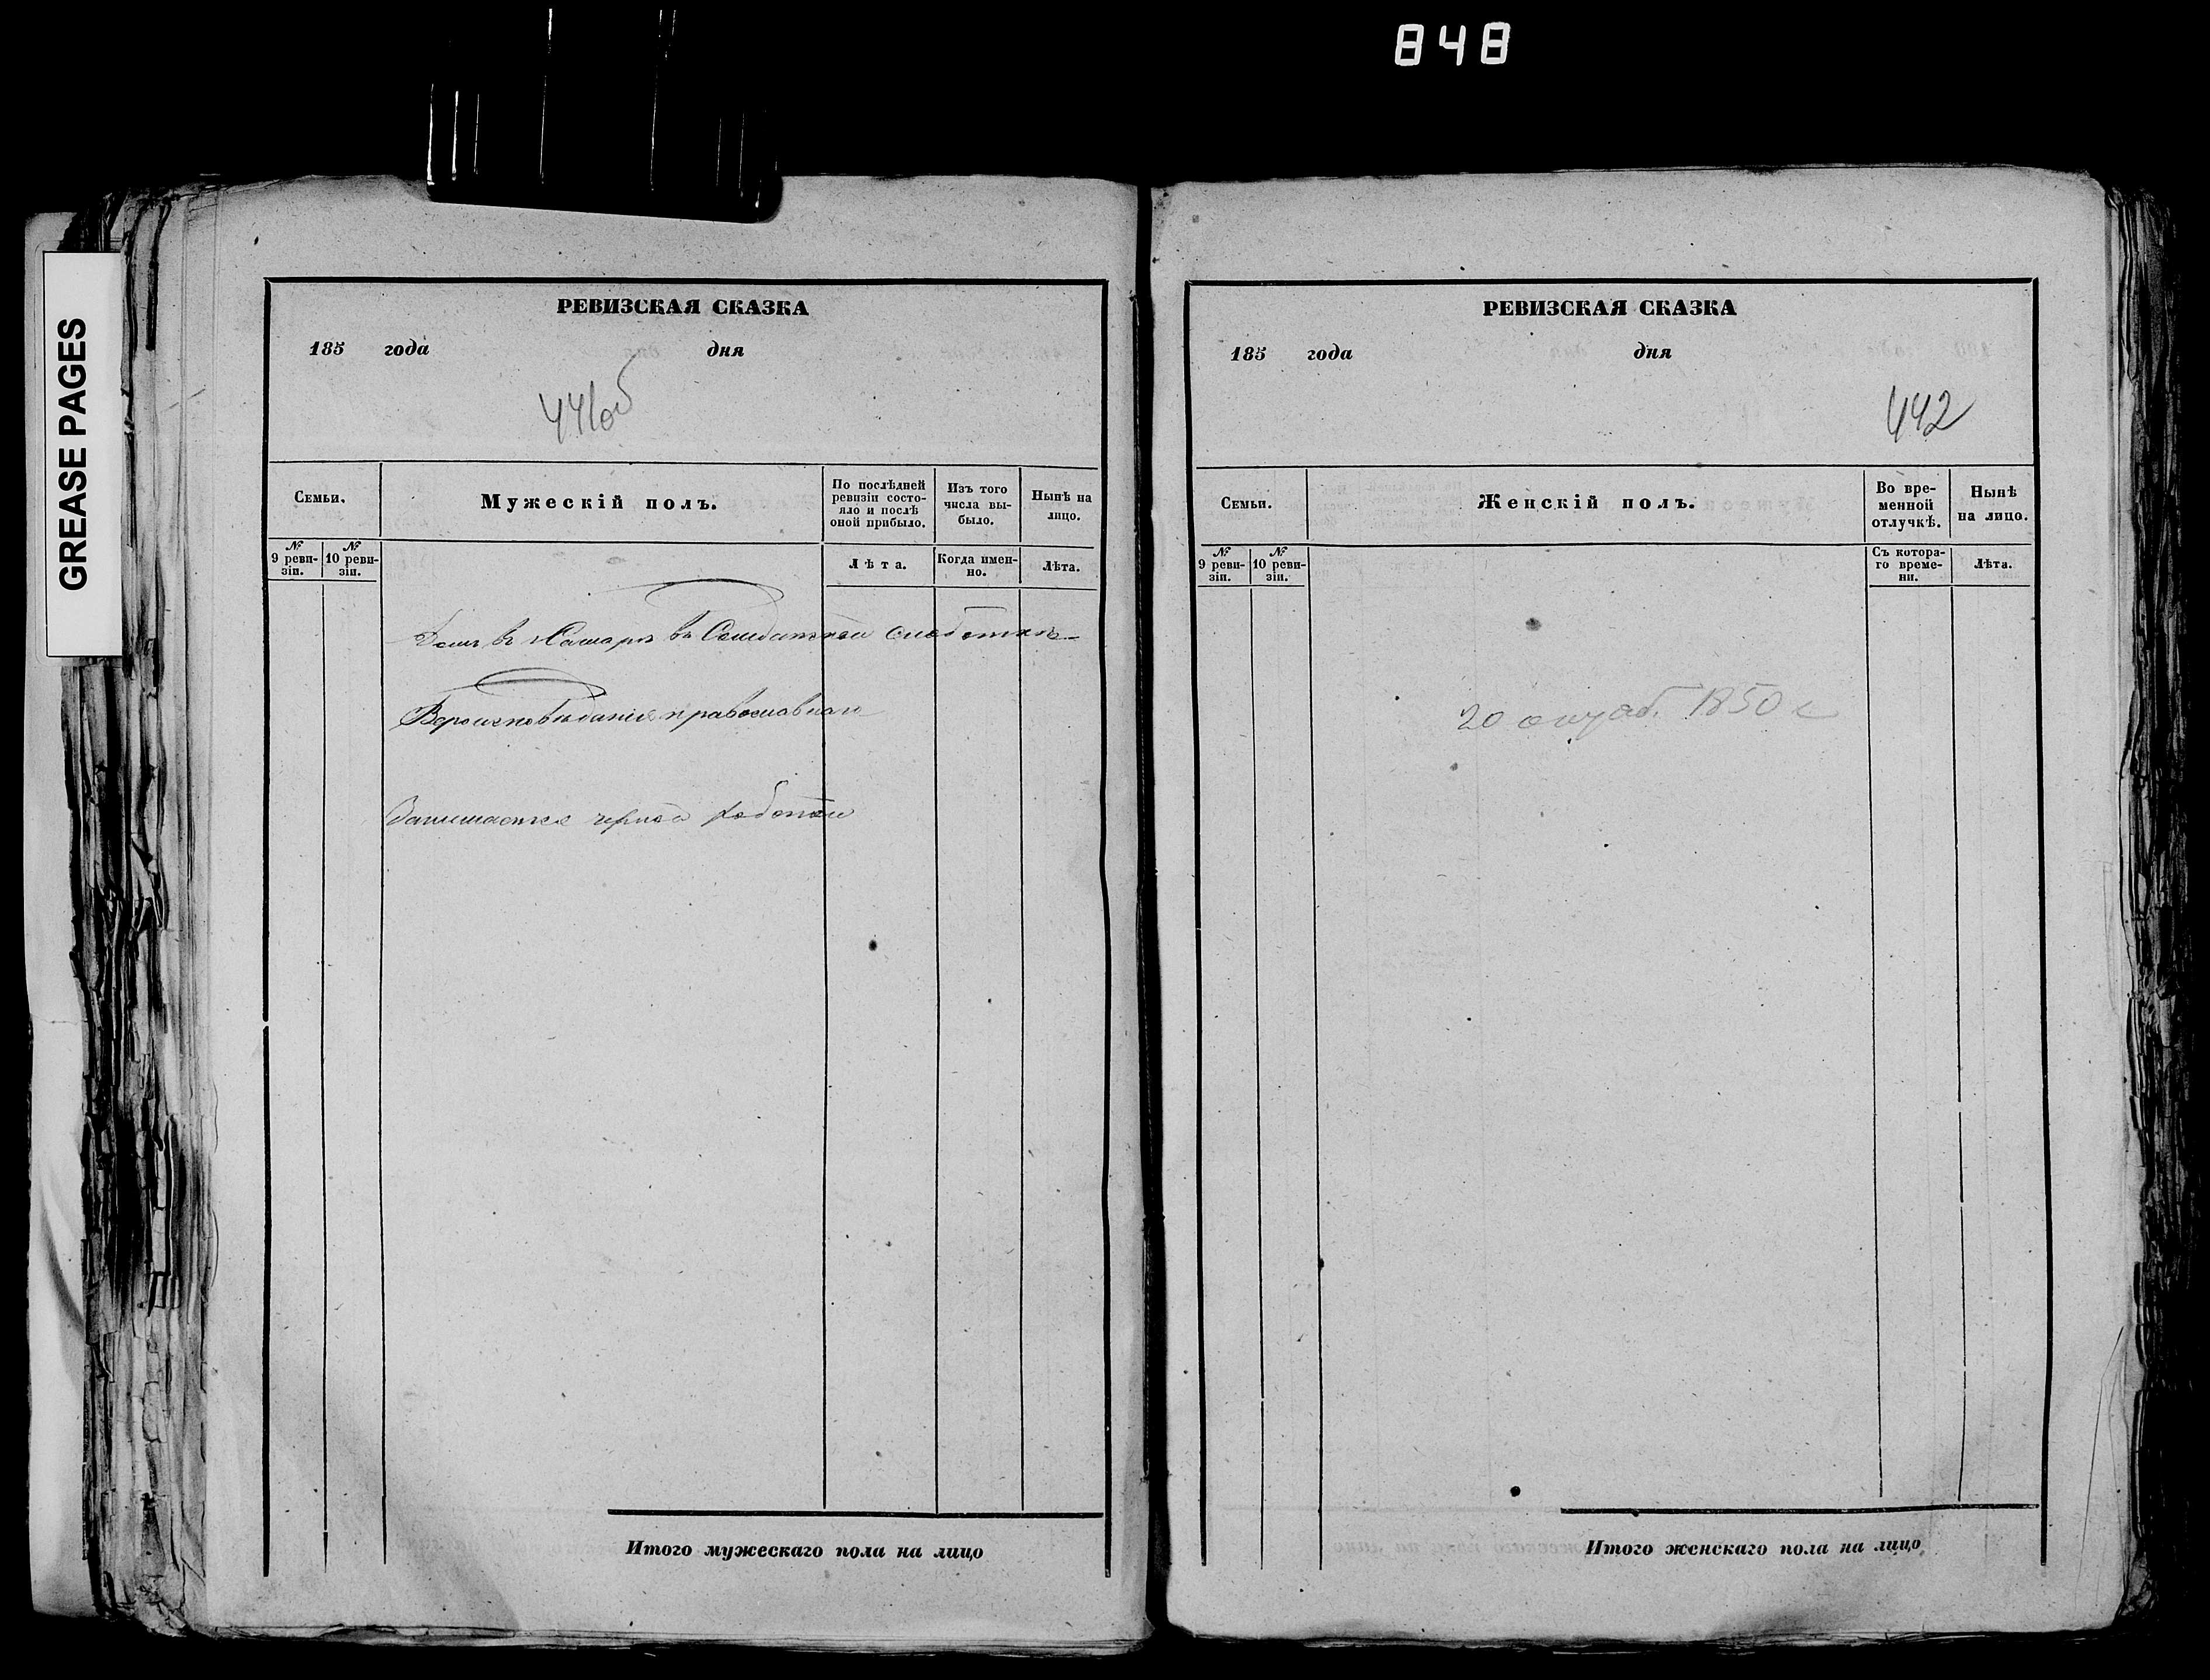 848
GREASE PAGES
РЕВИЗСКАЯ СКАЗКА
185 года дня
441об
Семьи.
Мужескій полъ.
По послѣдней ревизіи состояло и послѣ оной прибыло.
Изъ того числа выбыло.
Нынѣ на лицо.
№ 9 ревизіи.
№ 10 ревизіи.
Лѣта.
Когда именно.
Лѣта.
Домъ въ г Самарѣ въ Солдатской слободкѣ
Вероисповѣданія православнаго
Занимается черной работой
Итого мужескаго пола на лицо
РЕВИЗСКАЯ СКАЗКА
185 года дня
442
Семьи.
Женскій полъ.
Во временной отлучкѣ.
Нынѣ на лицо.
№ 9 ревизіи.
№ 10 ревизіи.
Съ котораго времени.
Лѣта.
20 1850 г
Итого женскаго пола на лицо